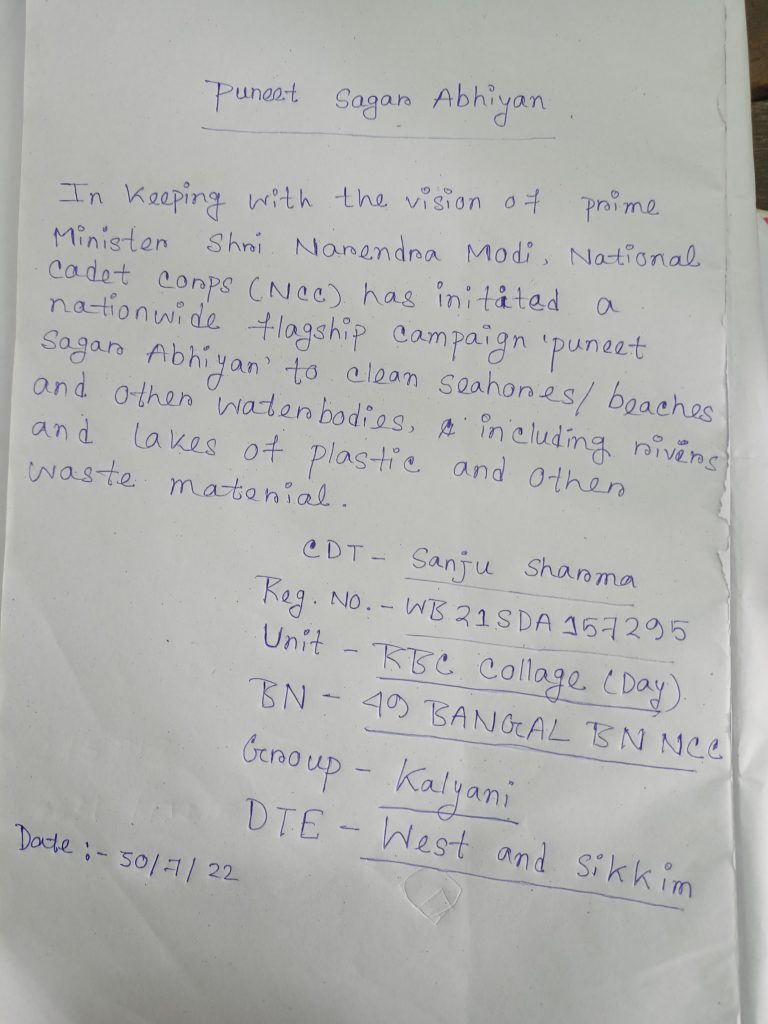 Puneet Sagar Abhiyan
In Keeping with the vision of prime
Minister Shri Narendra Modi, National
Cadet Corps (NCC) has initated a
nationwide flagship Campaign 'puneet
Sagar Abhiyan' to clean seahores/beaches
and other waterbodies, including rivers
and lakes of plastic and other
waste material.
CDT - Sanju Sharma
Reg. NO. - WB21SDA157295
Unit - KBC Collage (Day)
BN - 49 BANGAL BN NCC
Group - Kalyani
DTE - West and Sikkim
Date :- 30/7/22